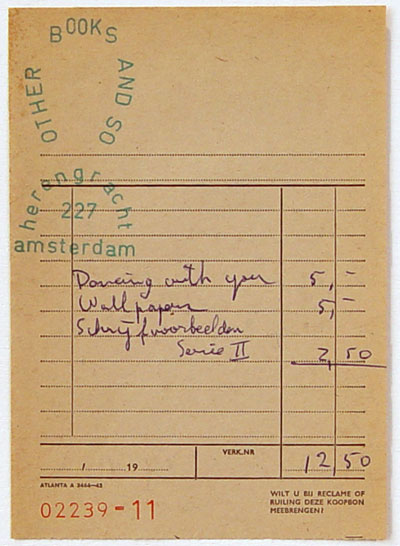 OTHER BOOKS AND SO
herengracht
227
amsterdam
Dancing with you 5,-
Wallpaper 5,-
Schrijfvoorbeelden
Serie II 2,50
VERK.NR
/ 19 12,50
ATLANTA A 5464-42
02239-11
WILT U BIJ RECLAME OF
RUILING DEZE KOOPBON
MEEBRENGEN?